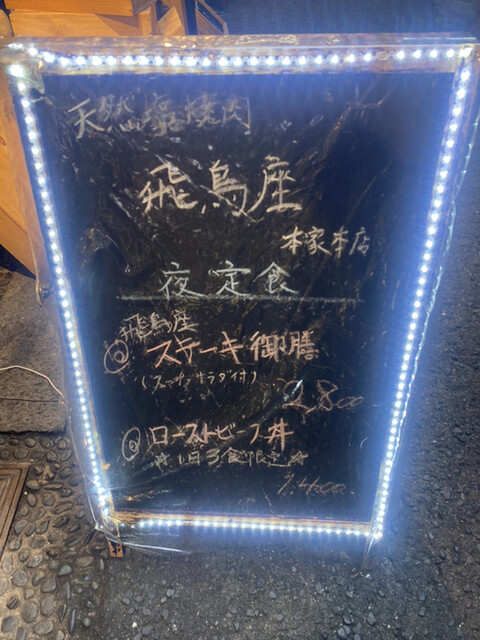 天然塩焼肉
飛鳥座
本家本店
夜定食
飛鳥座
◎ステーキ御膳
(スープサラダ付)
2,800
◎ローストビーフ丼
☆1日3食限定☆
1,400